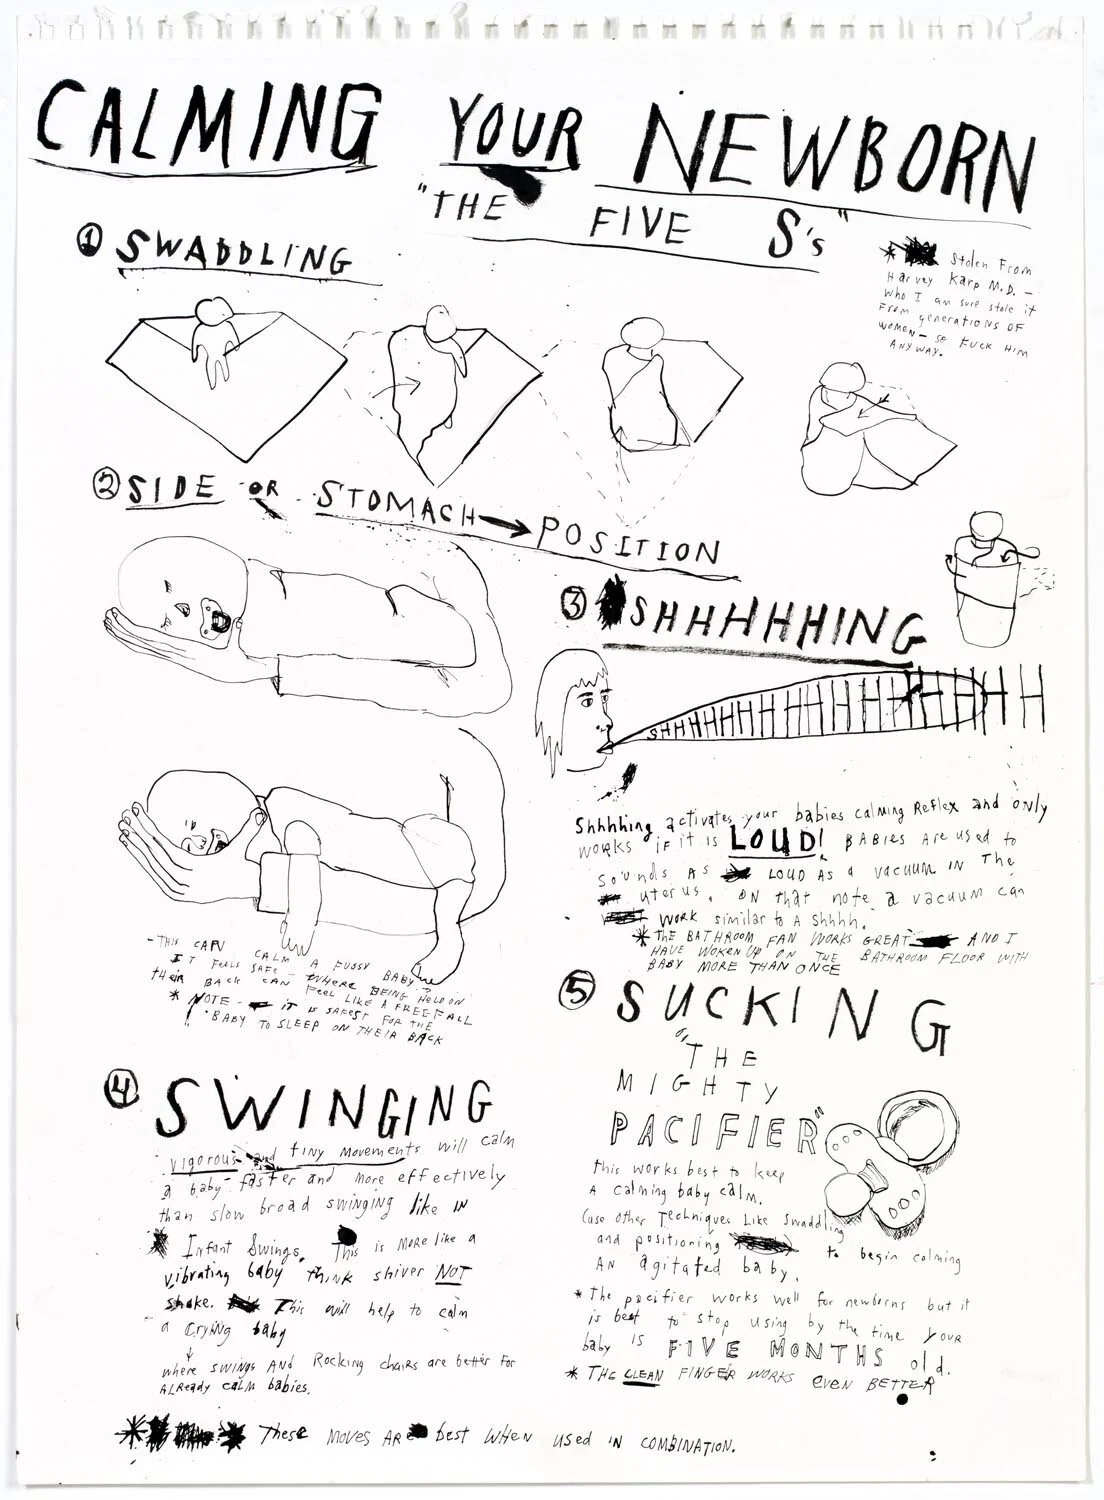 CALMING YOUR NEWBORN
"THE FIVE S's"
① SWADDLING
* Stolen From
Harvey Karp M.D. -
who I am sure stole it
From generations OF
women - so FUCK HIM
ANYWAY.
② SIDE OR STOMACH → POSITION
③ SHHHHHHING
SHHHHHHHHHHHHHHHHHH
Shhhhing activates your babies calming Reflex and only
works if it is LOUD! BABIES ARE used to
sounds AS LOUD AS a vacuum IN The
uterus. ON that note a vacuum can
WORK similar to A Shhhh.
* THE BATHROOM FAN WORKS GREAT AND I
HAVE WOKEN UP ON THE BATHROOM FLOOR WITH
BABY MORE THAN ONCE
- THIS CAN CALM A FUSSY BABY
IT FEELS SAFE - WHERE BEING HELD ON
their BACK CAN FEEL LIKE A FREEFALL
* NOTE - IT IS SAFEST FOR THE
BABY TO SLEEP ON THEIR BACK
④ SWINGING
vigorous and tiny movements will calm
a baby faster and more effectively
than slow broad swinging like IN
Infant Swings. This is More like a
vibrating baby think shiver NOT
shake. This will help to calm
a Crying baby
where SWINGS AND Rocking chairs are better For
ALReady calm babies.
⑤ SUCKING
"THE
MIGHTY
PACIFIER"
this works best to keep
A calming baby calm.
(use other Techniques Like swaddling
and positioning to begin calming
AN agitated baby.
* The pacifier works well for newborns but it
is best to stop using by the time YOUR
baby is FIVE MONTHS old.
* THE CLEAN FINGER WORKS EVEN BETTER
* * These MOVES ARE best WHEN used IN COMBINATION.